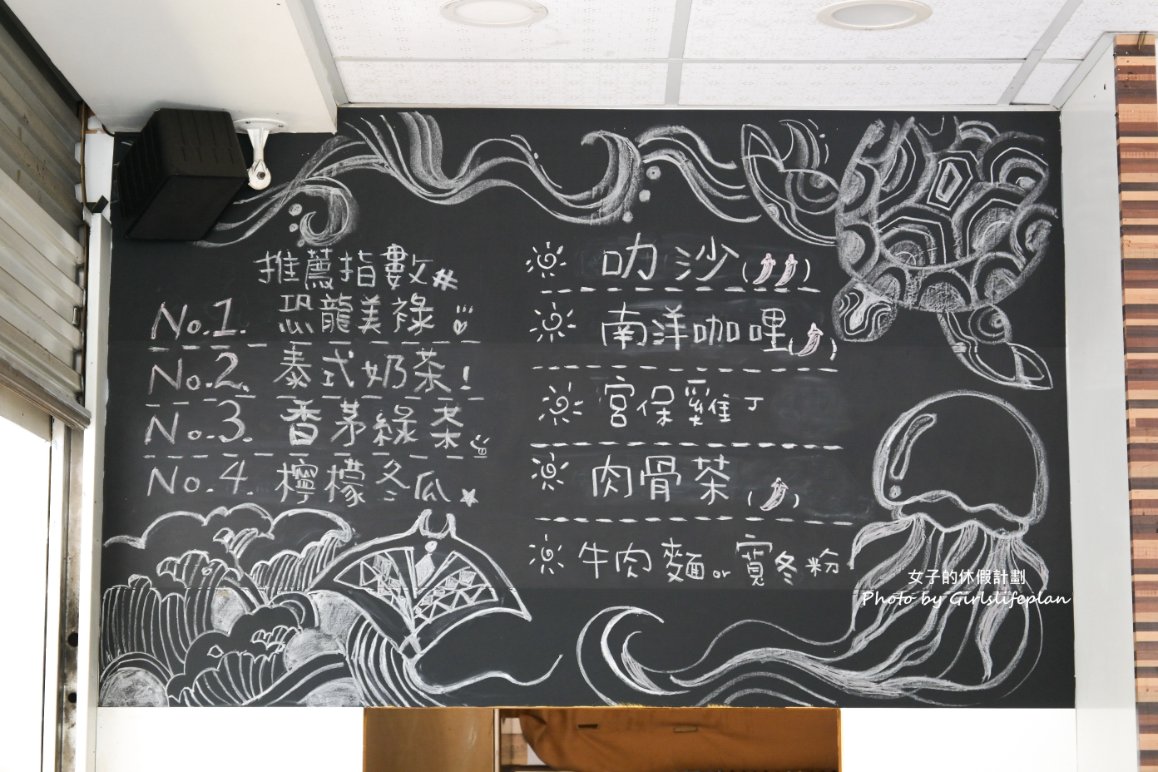 推薦指數#
No.1. 恐龍美祿
No.2. 泰式奶茶!
No.3. 香茅綠茶
No.4. 檸檬冬瓜
叻沙( )
南洋咖哩( )
宮保雞丁
肉骨茶( )
牛肉麵or寬冬粉
女子的休假計劃
Photo by Girlslifeplan